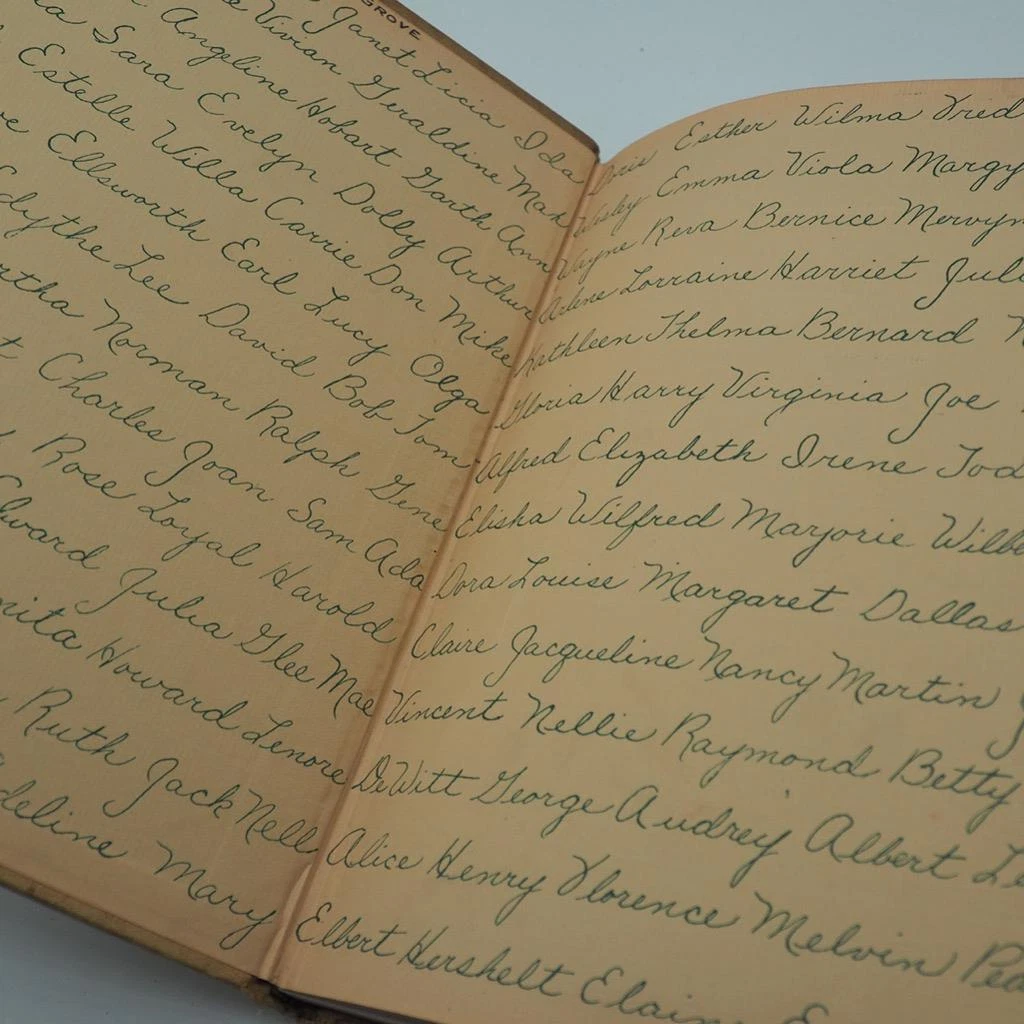 GROVE
Janet Licia Ida
Vivian Geraldine Max
Angeline Hobart Garth Ann
Sara Evelyn Dolly Arthur
Estelle Willa Carrie Don Mike
Ellsworth Earl Lucy Olga
Edythe Lee David Bob Tom
Norman Ralph Gene
Charles Joan Sam Ada
Rose Loyal Harold
Julia Glee Mae
Howard Lenore
Ruth Jack Nell
Mary
Doris Esther Wilma Fred
Wesley Emma Viola Margy
Wayne Reva Bernice Mervyn
Arlene Lorraine Harriet
Kathleen Thelma Bernard
Gloria Harry Virginia Joe
Alfred Elizabeth Irene
Elisha Wilfred Marjorie
Dora Louise Margaret Dallas
Claire Jacqueline Nancy Martin
Vincent Nellie Raymond Betty
DeWitt George Audrey Albert
Alice Henry Florence Melvin
Elbert Hershelt